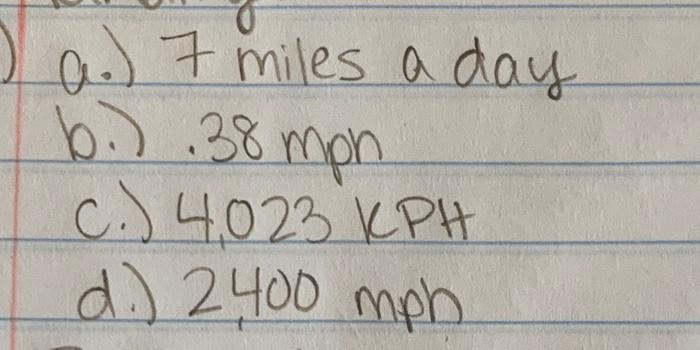 ) a.) 7 miles a day
b.) .38 mph
c.) 4,023 KPH
d.) 2,400 mph